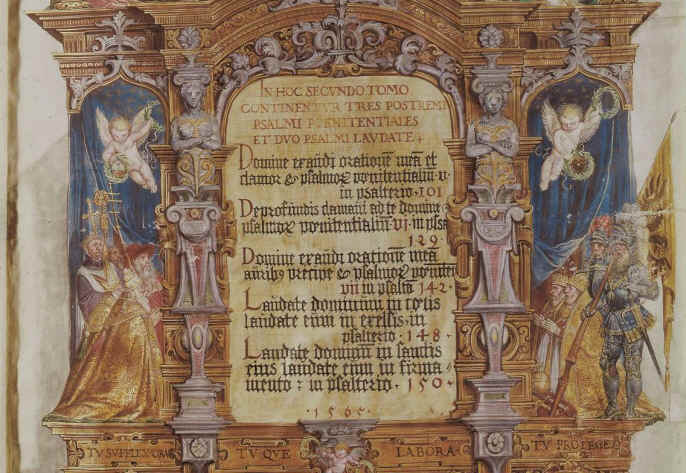 IN HOC SECUNDO TOMO
CONTINENTVR TRES POSTREMI
PSALMI POENITENTIALES
ET DVO PSALMI LAVDATE
Domine exaudi orationē meā et
clamor & psalmoꝝ penitentialiū v
in psalterio. 101
De profundis clamavi ad te domine
psalmoꝝ penitentialiū. vi. in psal
129
Domine exaudi orationē meā
auribus percipe & psalmoꝝ peniten
vii in psalt. 142.
Laudate dominum in celis
laudate eum in excelsis. in
psalterio. 148
Laudate dominū in sanctis
eius laudate eum in firma
mento: in psalterio. 150.
.1565.
TV SUPPLEX ORA
TV QUE
LABORA
TV PROTEGE